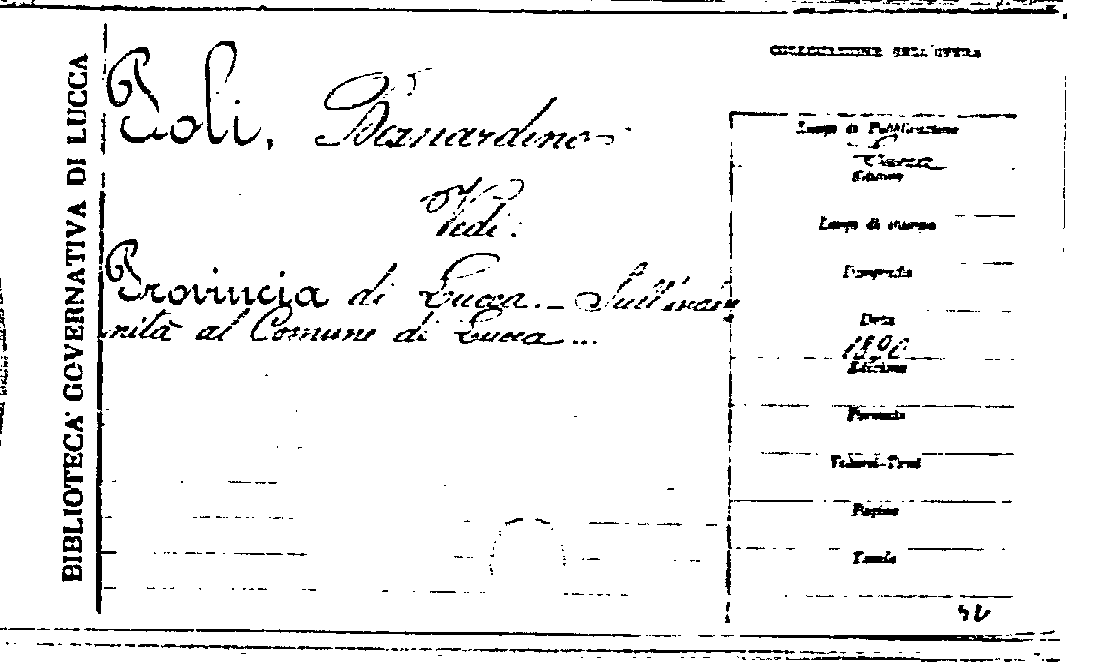 BIBLIOTECA GOVERNATIVA DI LUCCA
Poli, Bernardino
Vedi:
Provincia di Lucca. - Sull'inden
nità al Comune di Lucca ...
COLLOCAZIONE DELL'OPERA
Luogo di Pubblicazione
Lucca
Editore
Luogo di stampa
Tipografia
Data
1890
Edizione
Formato
Volumi-Tomi
Pagine
Tavole